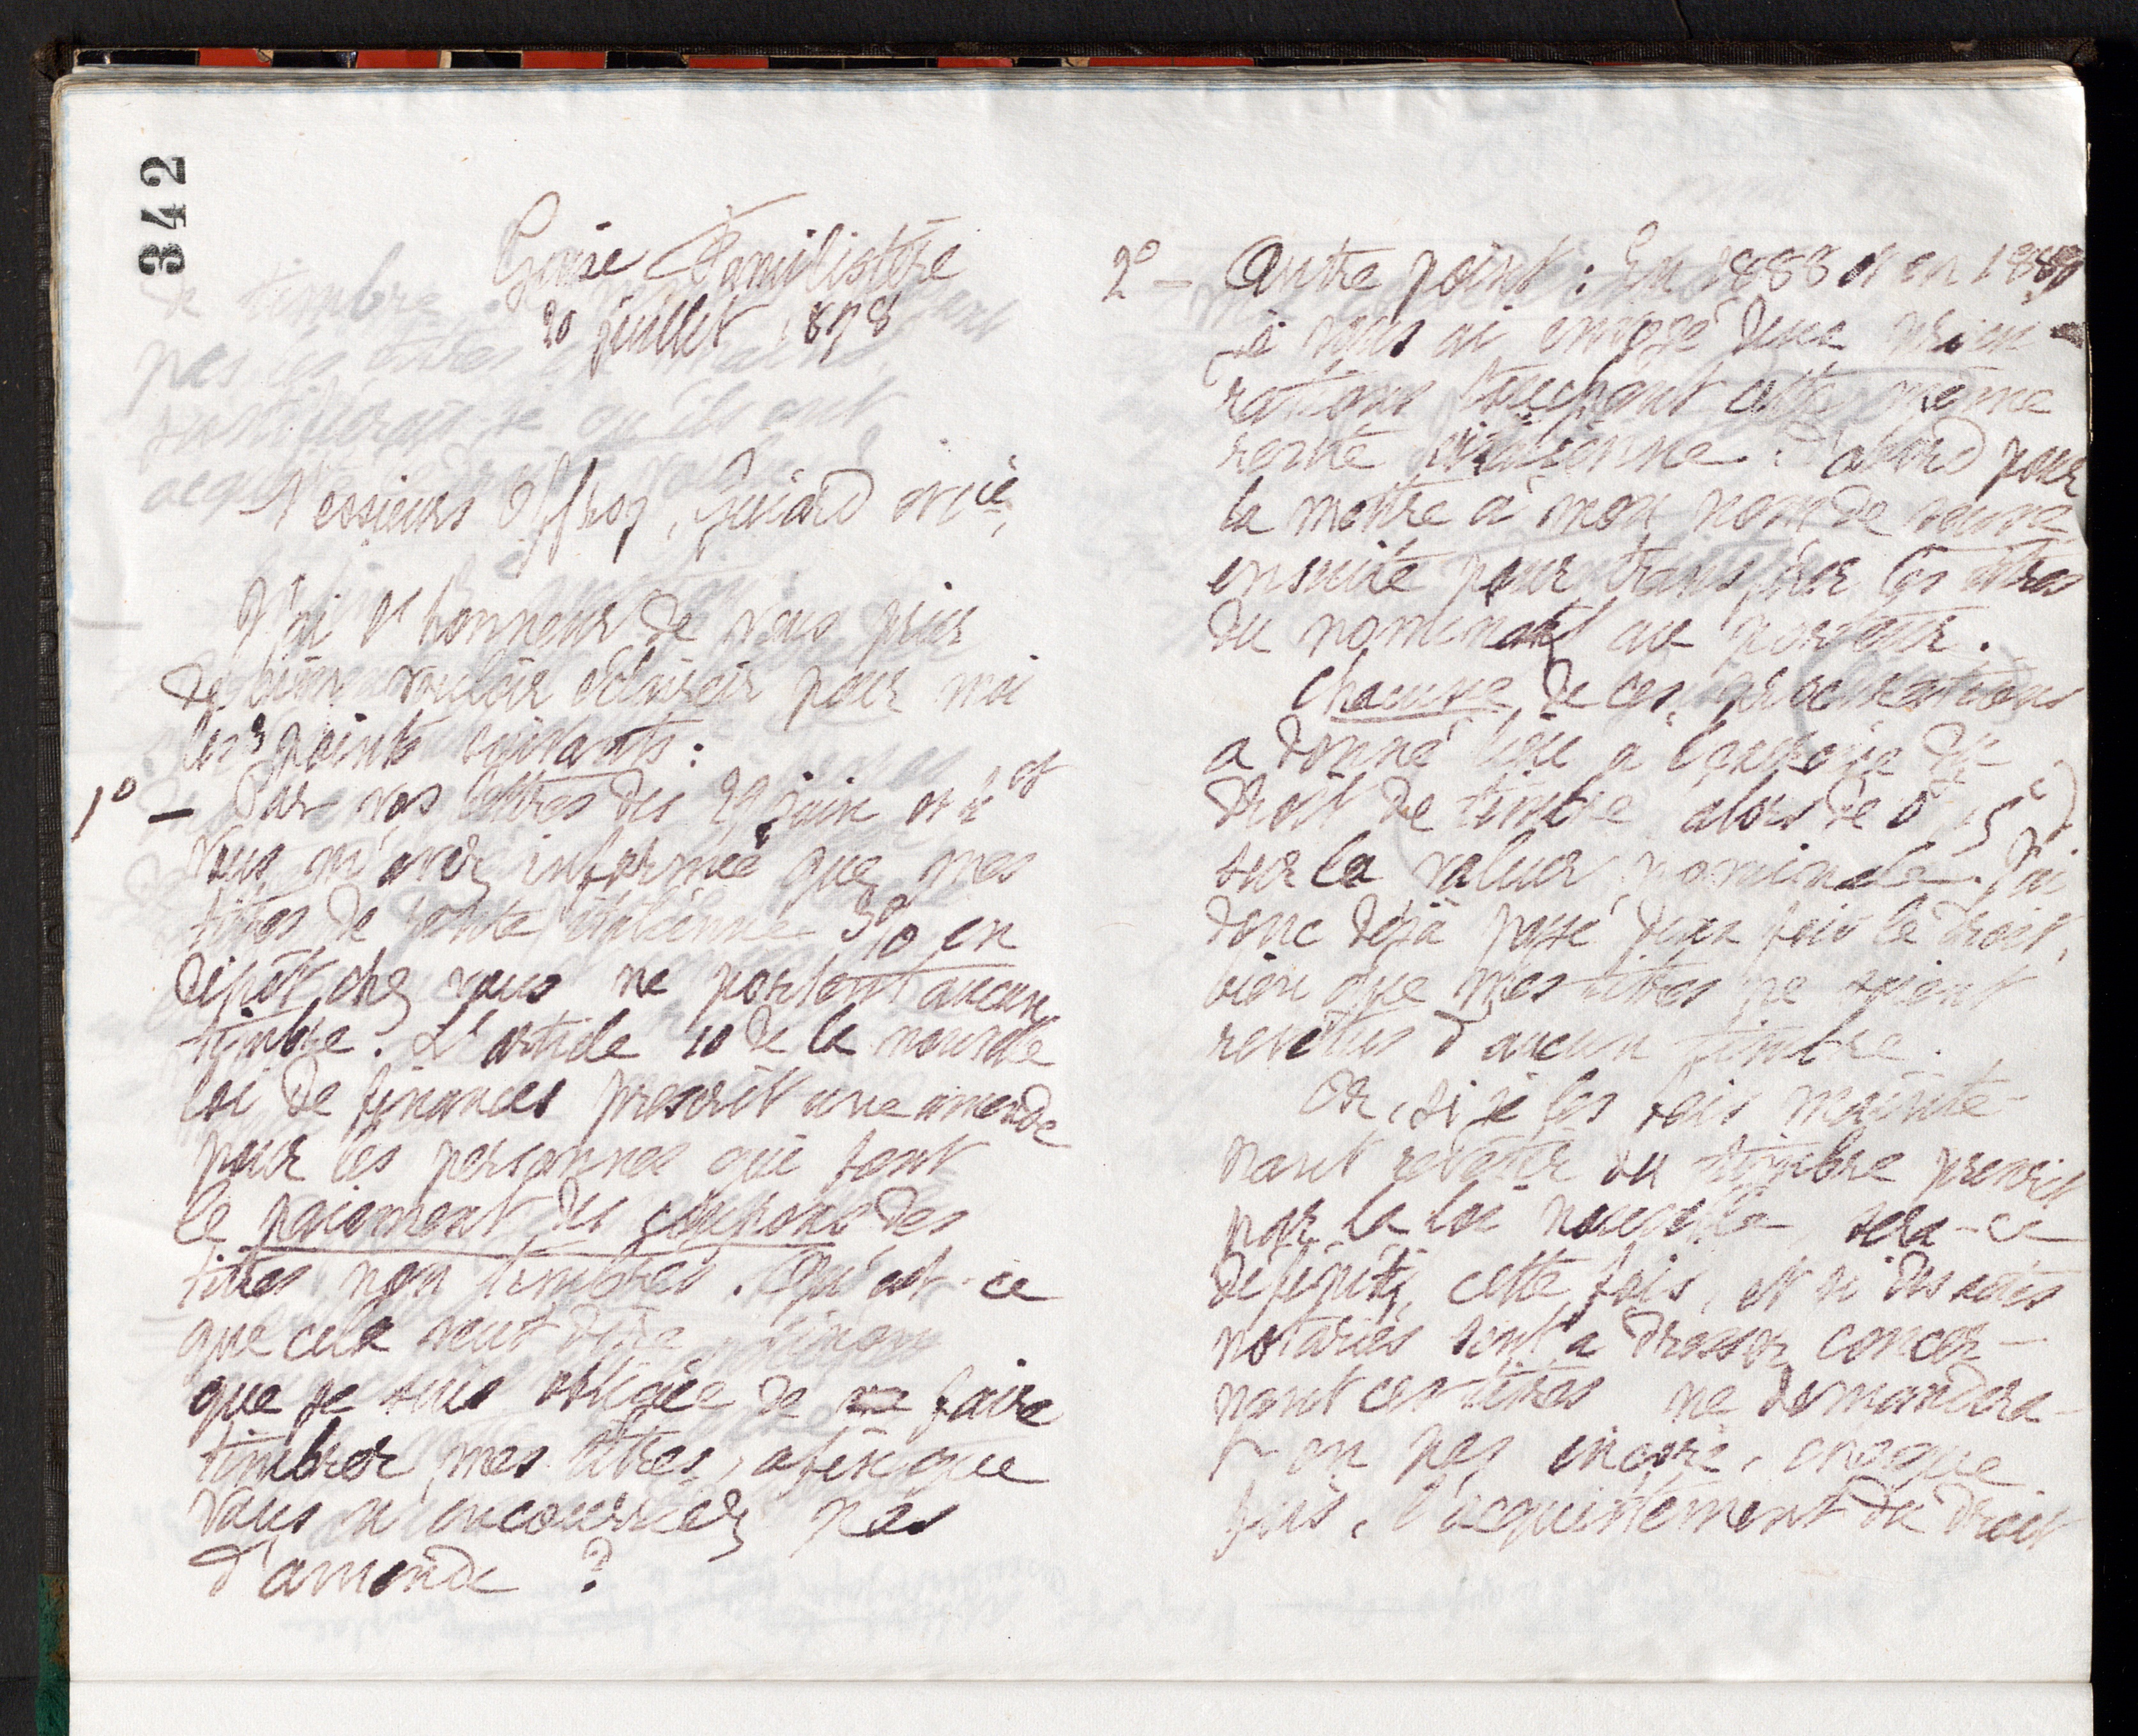 342
Guise Familistère
20 juillet 1898
Messieurs Offroy, Guiard et Cie,
J'ai l'honneur de vous prier
de bien vouloir éclaircir pour moi
les points suivants :
1° — Par vos lettres des 29 juin et
vous m'avez informée que mes
titres de rente italienne 5% en
dépôt chez vous ne portent aucun
timbre. L'article 10 de la nouvelle
loi de finances prescrit une amende
pour les personnes qui font
le paiement des coupons des
titres non timbrés. Qu'est-ce
que cela veut dire, sinon
que je suis obligée de faire
timbrer mes titres, afin que
vous n'encourriez pas
d'amende ?
2° — Autre point : En 1888 et en 1889
je vous ai envoyé deux
rations touchant cette même
rente italienne. D'abord pour
la mettre à mon nom de veuve
ensuite pour transférer les titres
du nominatif au porteur.
Chacune de ces procurations
a donné lieu à du
droit de timbre alors de 0
sur la valeur nominale. J'ai
donc déjà payé deux fois le droit,
bien que mes titres ne soient
revêtus d'aucun timbre.
Or, si je les fais mainte-
nant revêtir du timbre prescrit
par la loi nouvelle, sera-ce
définitif, cette fois, et si des actes
notariés sont à dresser concer-
nant ces titres ne demandera-
t-on pas encore, chaque
fois, l'acquittement du droit